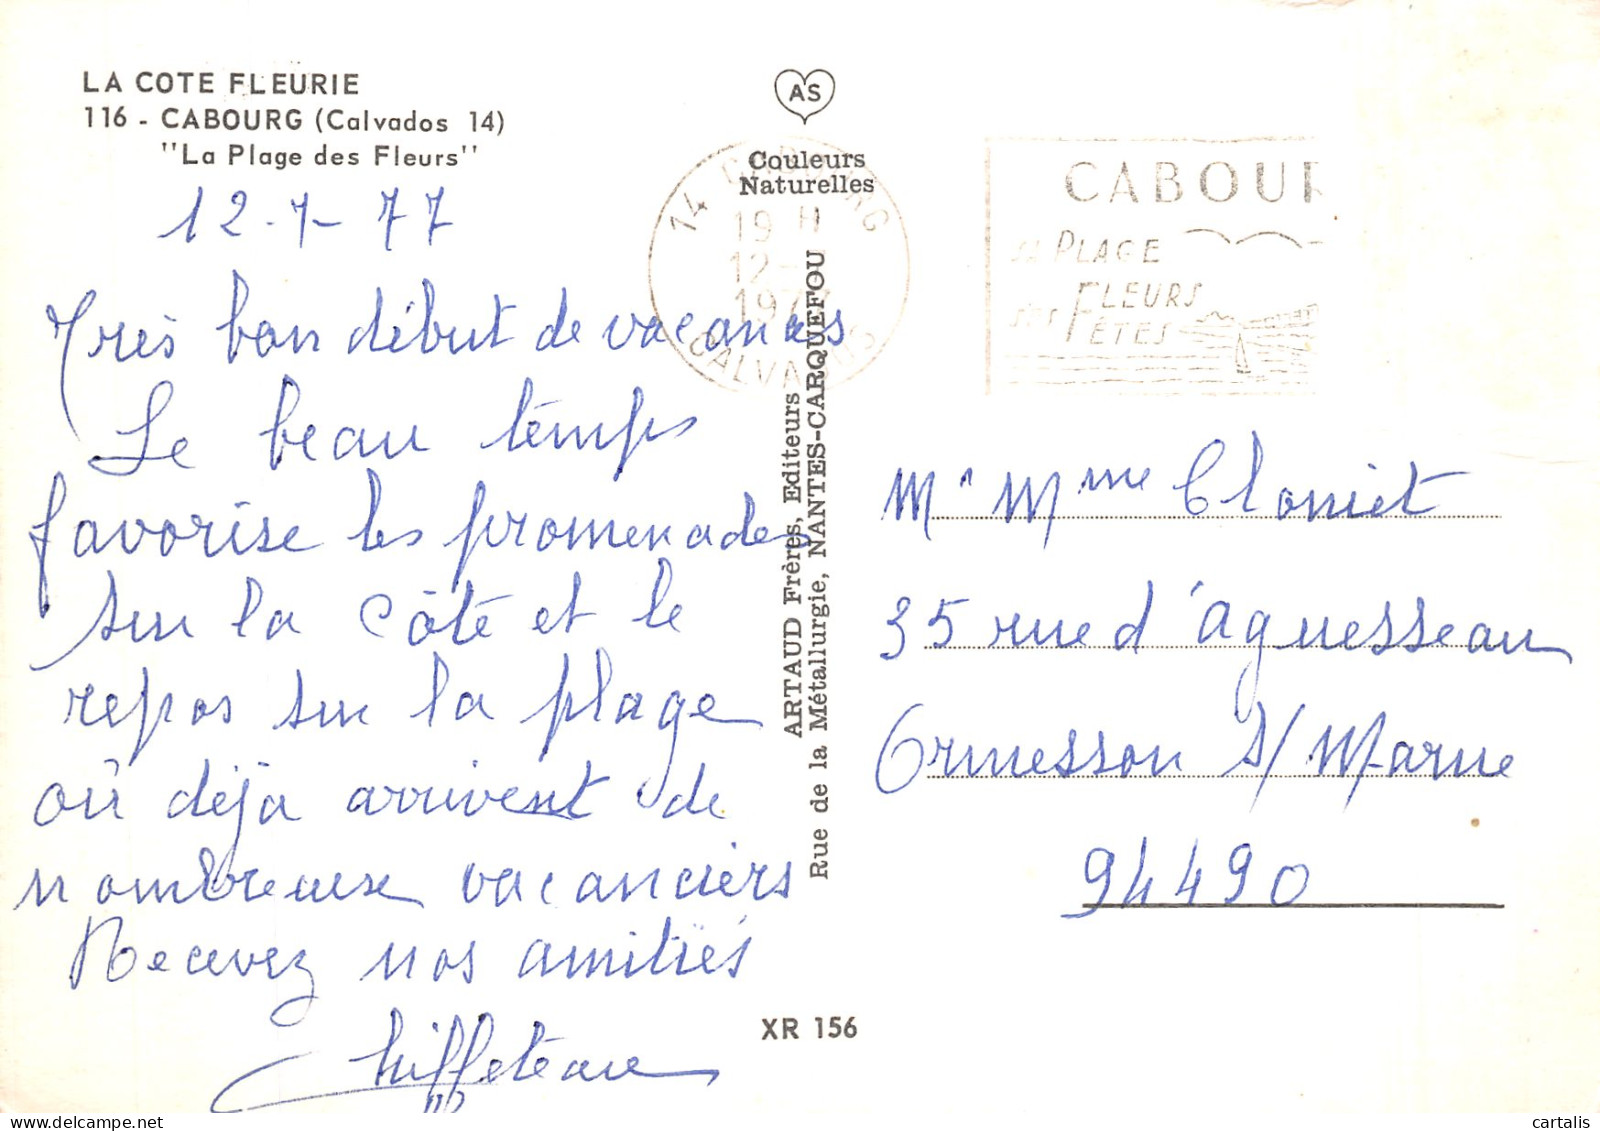 LA COTE FLEURIE
116 - CABOURG (Calvados 14)
"La Plage des Fleurs"
12-7-77
Très bon début de vacances
Le beau temps
favorise les promenades
sur la Côte et le
repos sur la plage
où déjà arrivent de
nombreuse vacanciers
Recevez nos amitiés
AS
Couleurs
Naturelles
ARTAUD Frères, Editeurs
Rue de la Métallurgie, NANTES-CARQUEFOU
XR 156
14 CABOURG
19 H
12-
1977
CALVADOS
CABOUR
SA PLAGE
SES FLEURS
FÊTES
Mr Mme Cloniet
35 rue d'aguesseau
Ormesson s/Marne
94490
cartalis